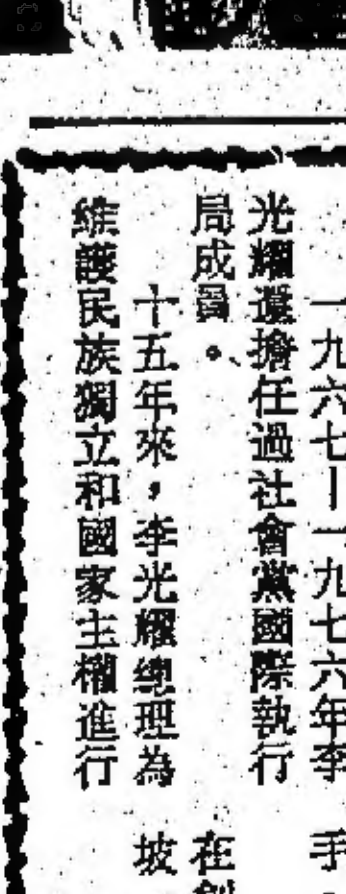 一九六七－一九七六年李
光耀還擔任過社會黨國際執行
局成員。
十五年來，李光耀總理為
維護民族獨立和國家主權進行
手
在
坡